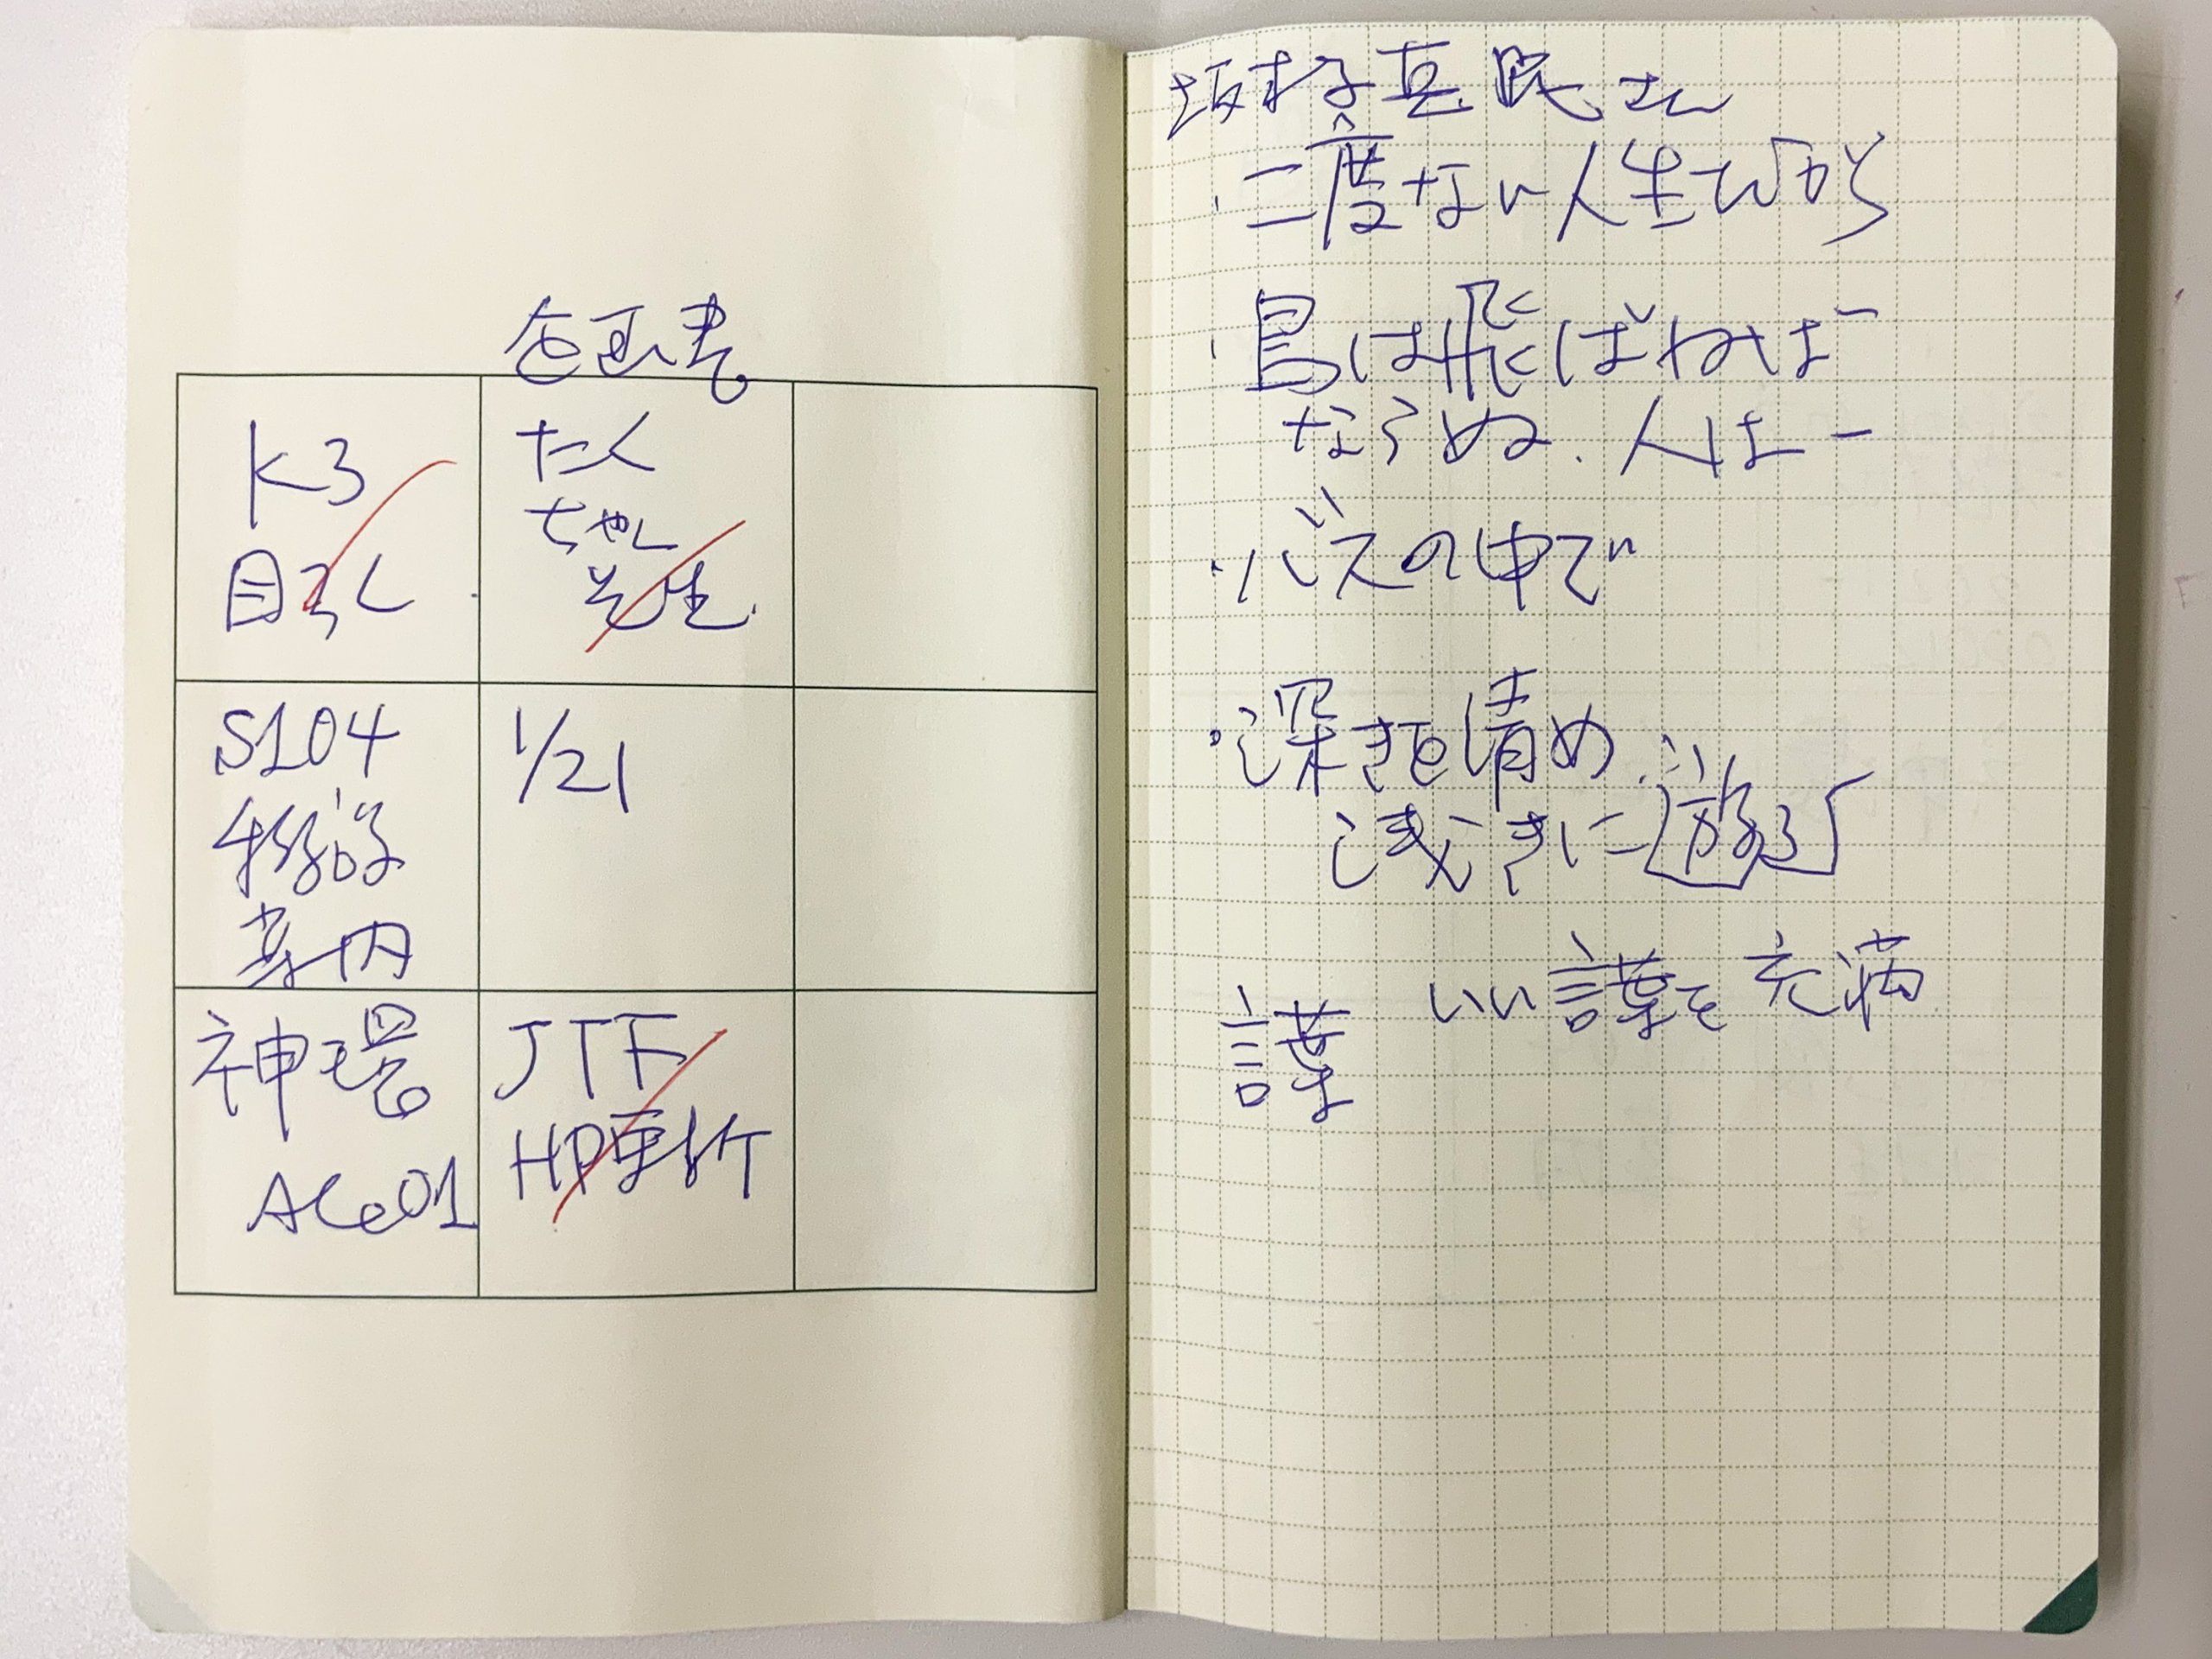 企画書
K3
目次
たく
ちゃん
先生
S104
移設
案内
1/21
神環
ACe01
JTF
HP更新
坂村真民さん
・二度ない人生だから
・鳥は飛ばねば
ならぬ、人はー
・バスの中で
・深きを清め
浅きに遊ぶ
いい 言葉を 充満
言葉